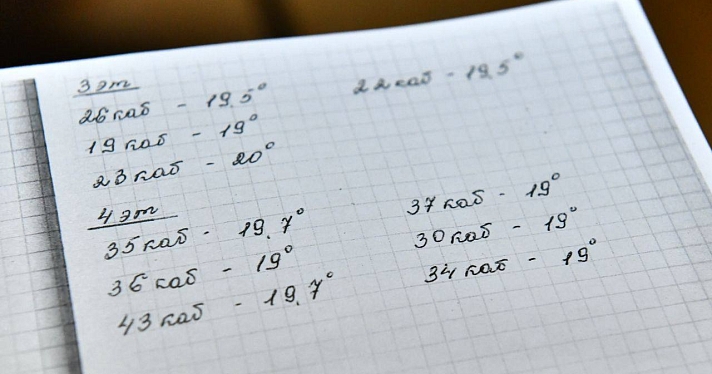 3 эт
26 каб - 19,5°
22 каб - 19,5°
19 каб - 19°
23 каб - 20°
4 эт
35 каб - 19,7°
37 каб - 19°
36 каб - 19°
30 каб - 19°
43 каб - 19,7°
34 каб - 19°